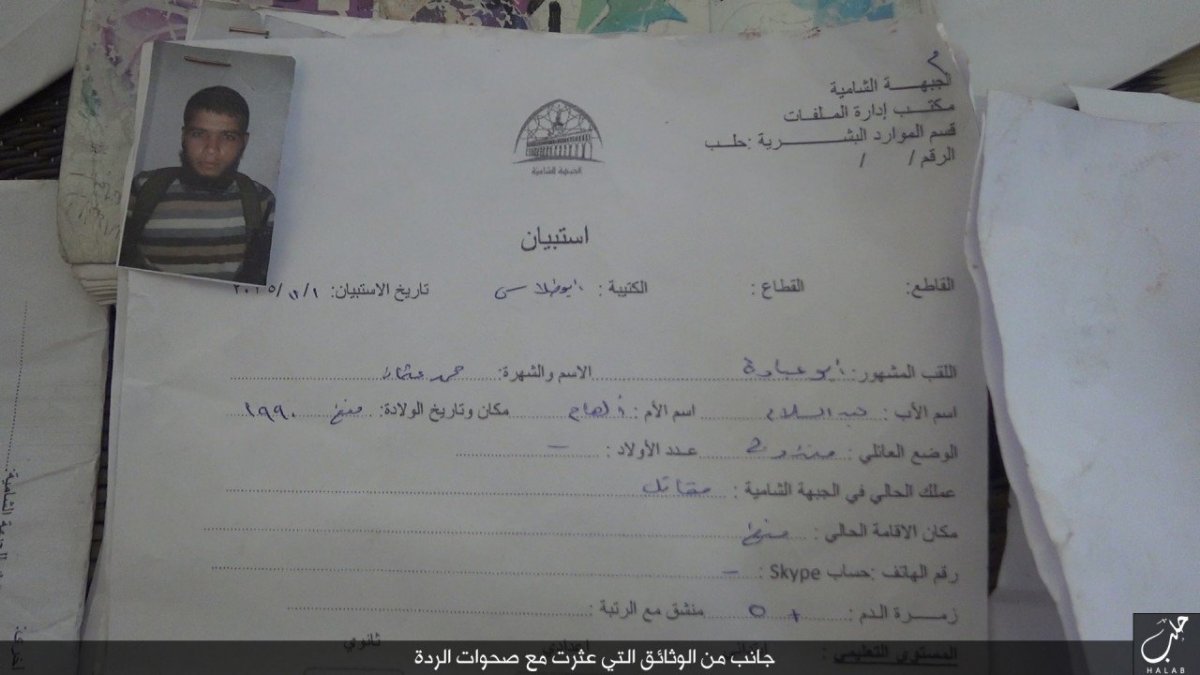 الجبهة الشامية
مكتب إدارة الملفات
قسم الموارد البشرية :حلب
الرقم / / /
الجبهة الشامية
استبيان
القاطع: القطاع: الكتيبة: تاريخ الاستبيان:
اللقب المشهور: أبو عبادة الاسم والشهرة:
اسم الأب: عبد السلام اسم الأم: مكان وتاريخ الولادة: منبج ١٩٩٠
الوضع العائلي: متزوج عدد الأولاد: –
عملك الحالي في الجبهة الشامية: مقاتل
مكان الاقامة الحالي: منبج
رقم الهاتف :حساب Skype: –
زمرة الدم: O + منشق مع الرتبة:
المستوى التعليمي: ثانوي
جانب من الوثائق التي عثرت مع صحوات الردة
حلب
HALAB
أخرى: